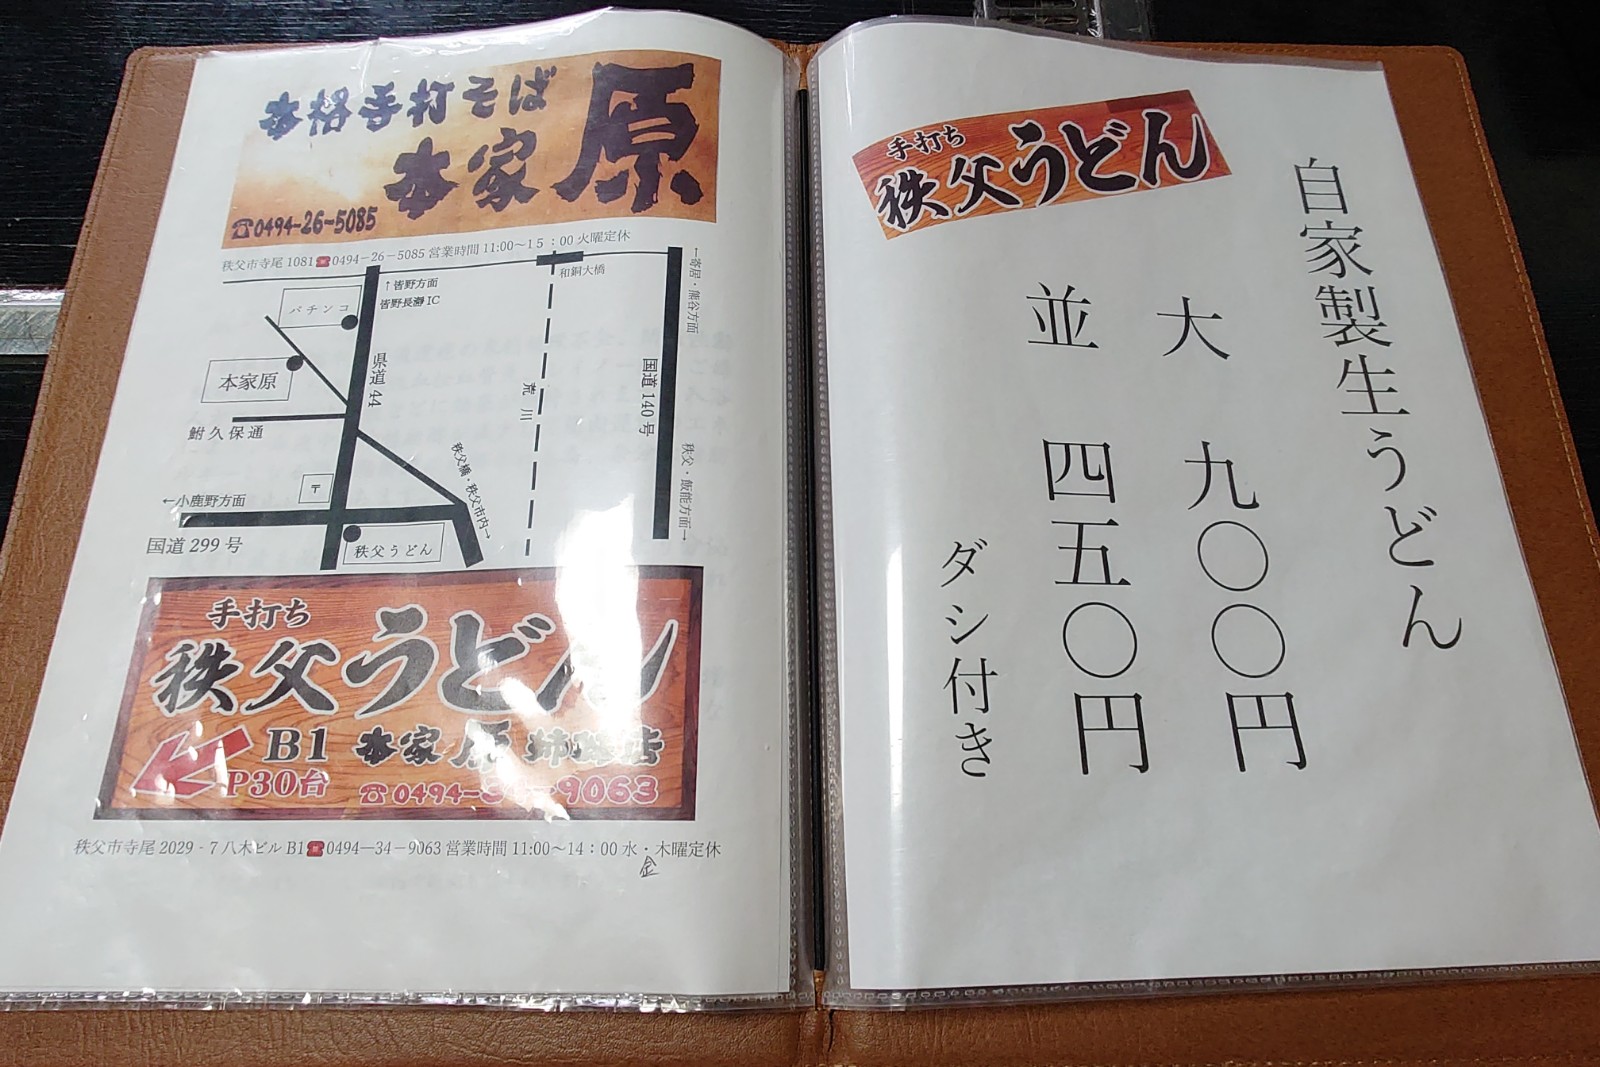 本格手打そば
本家原
☎0494-26-5085
秩父市寺尾1081☎0494-26-5085 営業時間 11:00～15:00 火曜定休
↑皆野方面
皆野長瀞IC
和銅大橋
←寄居・熊谷方面
パチンコ
本家原
県道44
荒川
国道140号
鮒久保通
秩父橋・秩父市内→
秩父・飯能方面→
〒
←小鹿野方面
国道299号
秩父うどん
手打ち
秩父うどん
B1 本家原 姉妹店
P30台
☎0494-34-9063
秩父市寺尾 2029-7 八木ビル B1☎0494—34-9063 営業時間 11:00～14:00 水・木曜定休
金
手打ち
秩父うどん
自家製生うどん
大 九〇〇円
並 四五〇円
ダシ付き